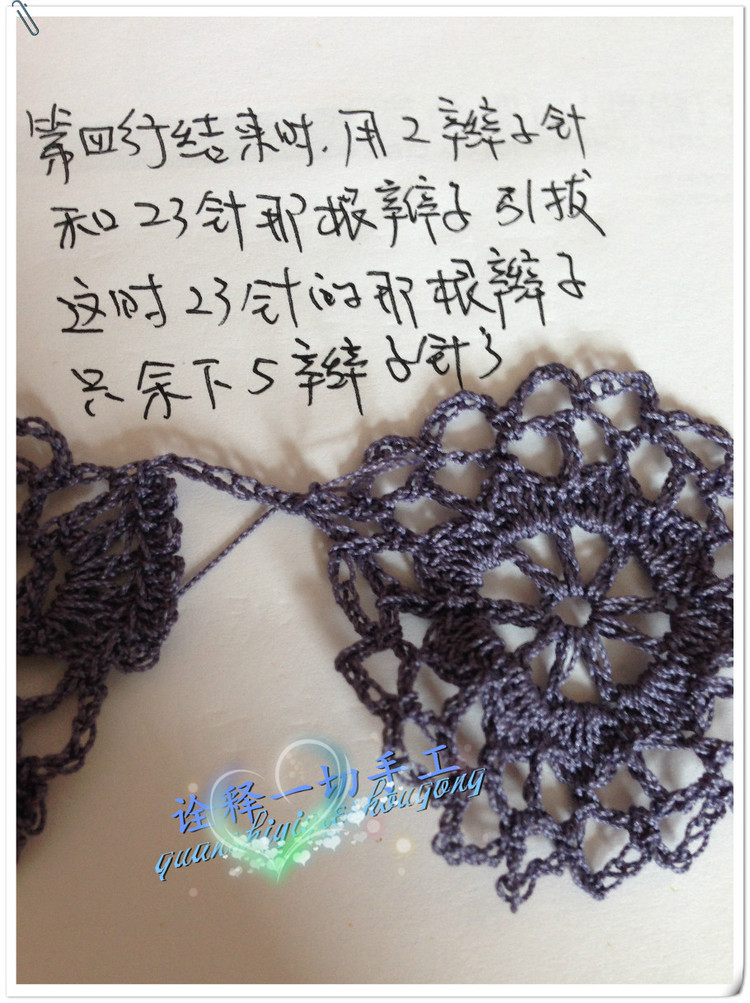 第四行结束时.用2辫子针
和23针那根辫子引拔
这时23针的那根辫子
只余下5辫子针了
诠释一切手工